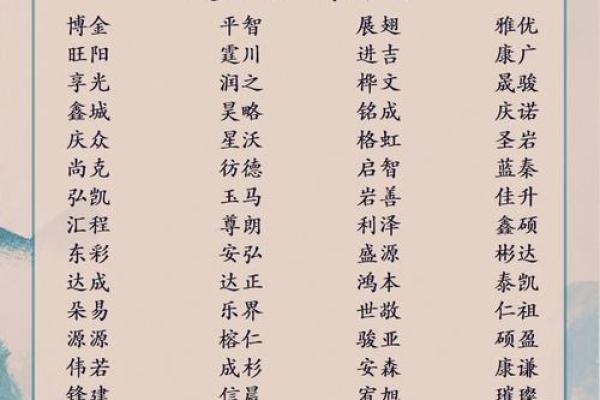 博金 平智 展翅 雅优
旺阳 霆川 进吉 康广
享光 润之 桦文 晟骏
鑫城 昊略 铭成 庆诺
庆众 星沃 格虹 圣岩
尚克 彷德 启智 蓝秦
弘凯 玉马 岩善 佳升
汇程 尊朗 利泽 鑫硕
东彩 安弘 盛源 彬达
达成 达正 鸿本 泰凯
朵易 乐界 世敬 仁祖
源源 榕仁 骏亚 硕盈
伟若 成杉 安森 康谦
锋建 信晨 宥旭 璀璨